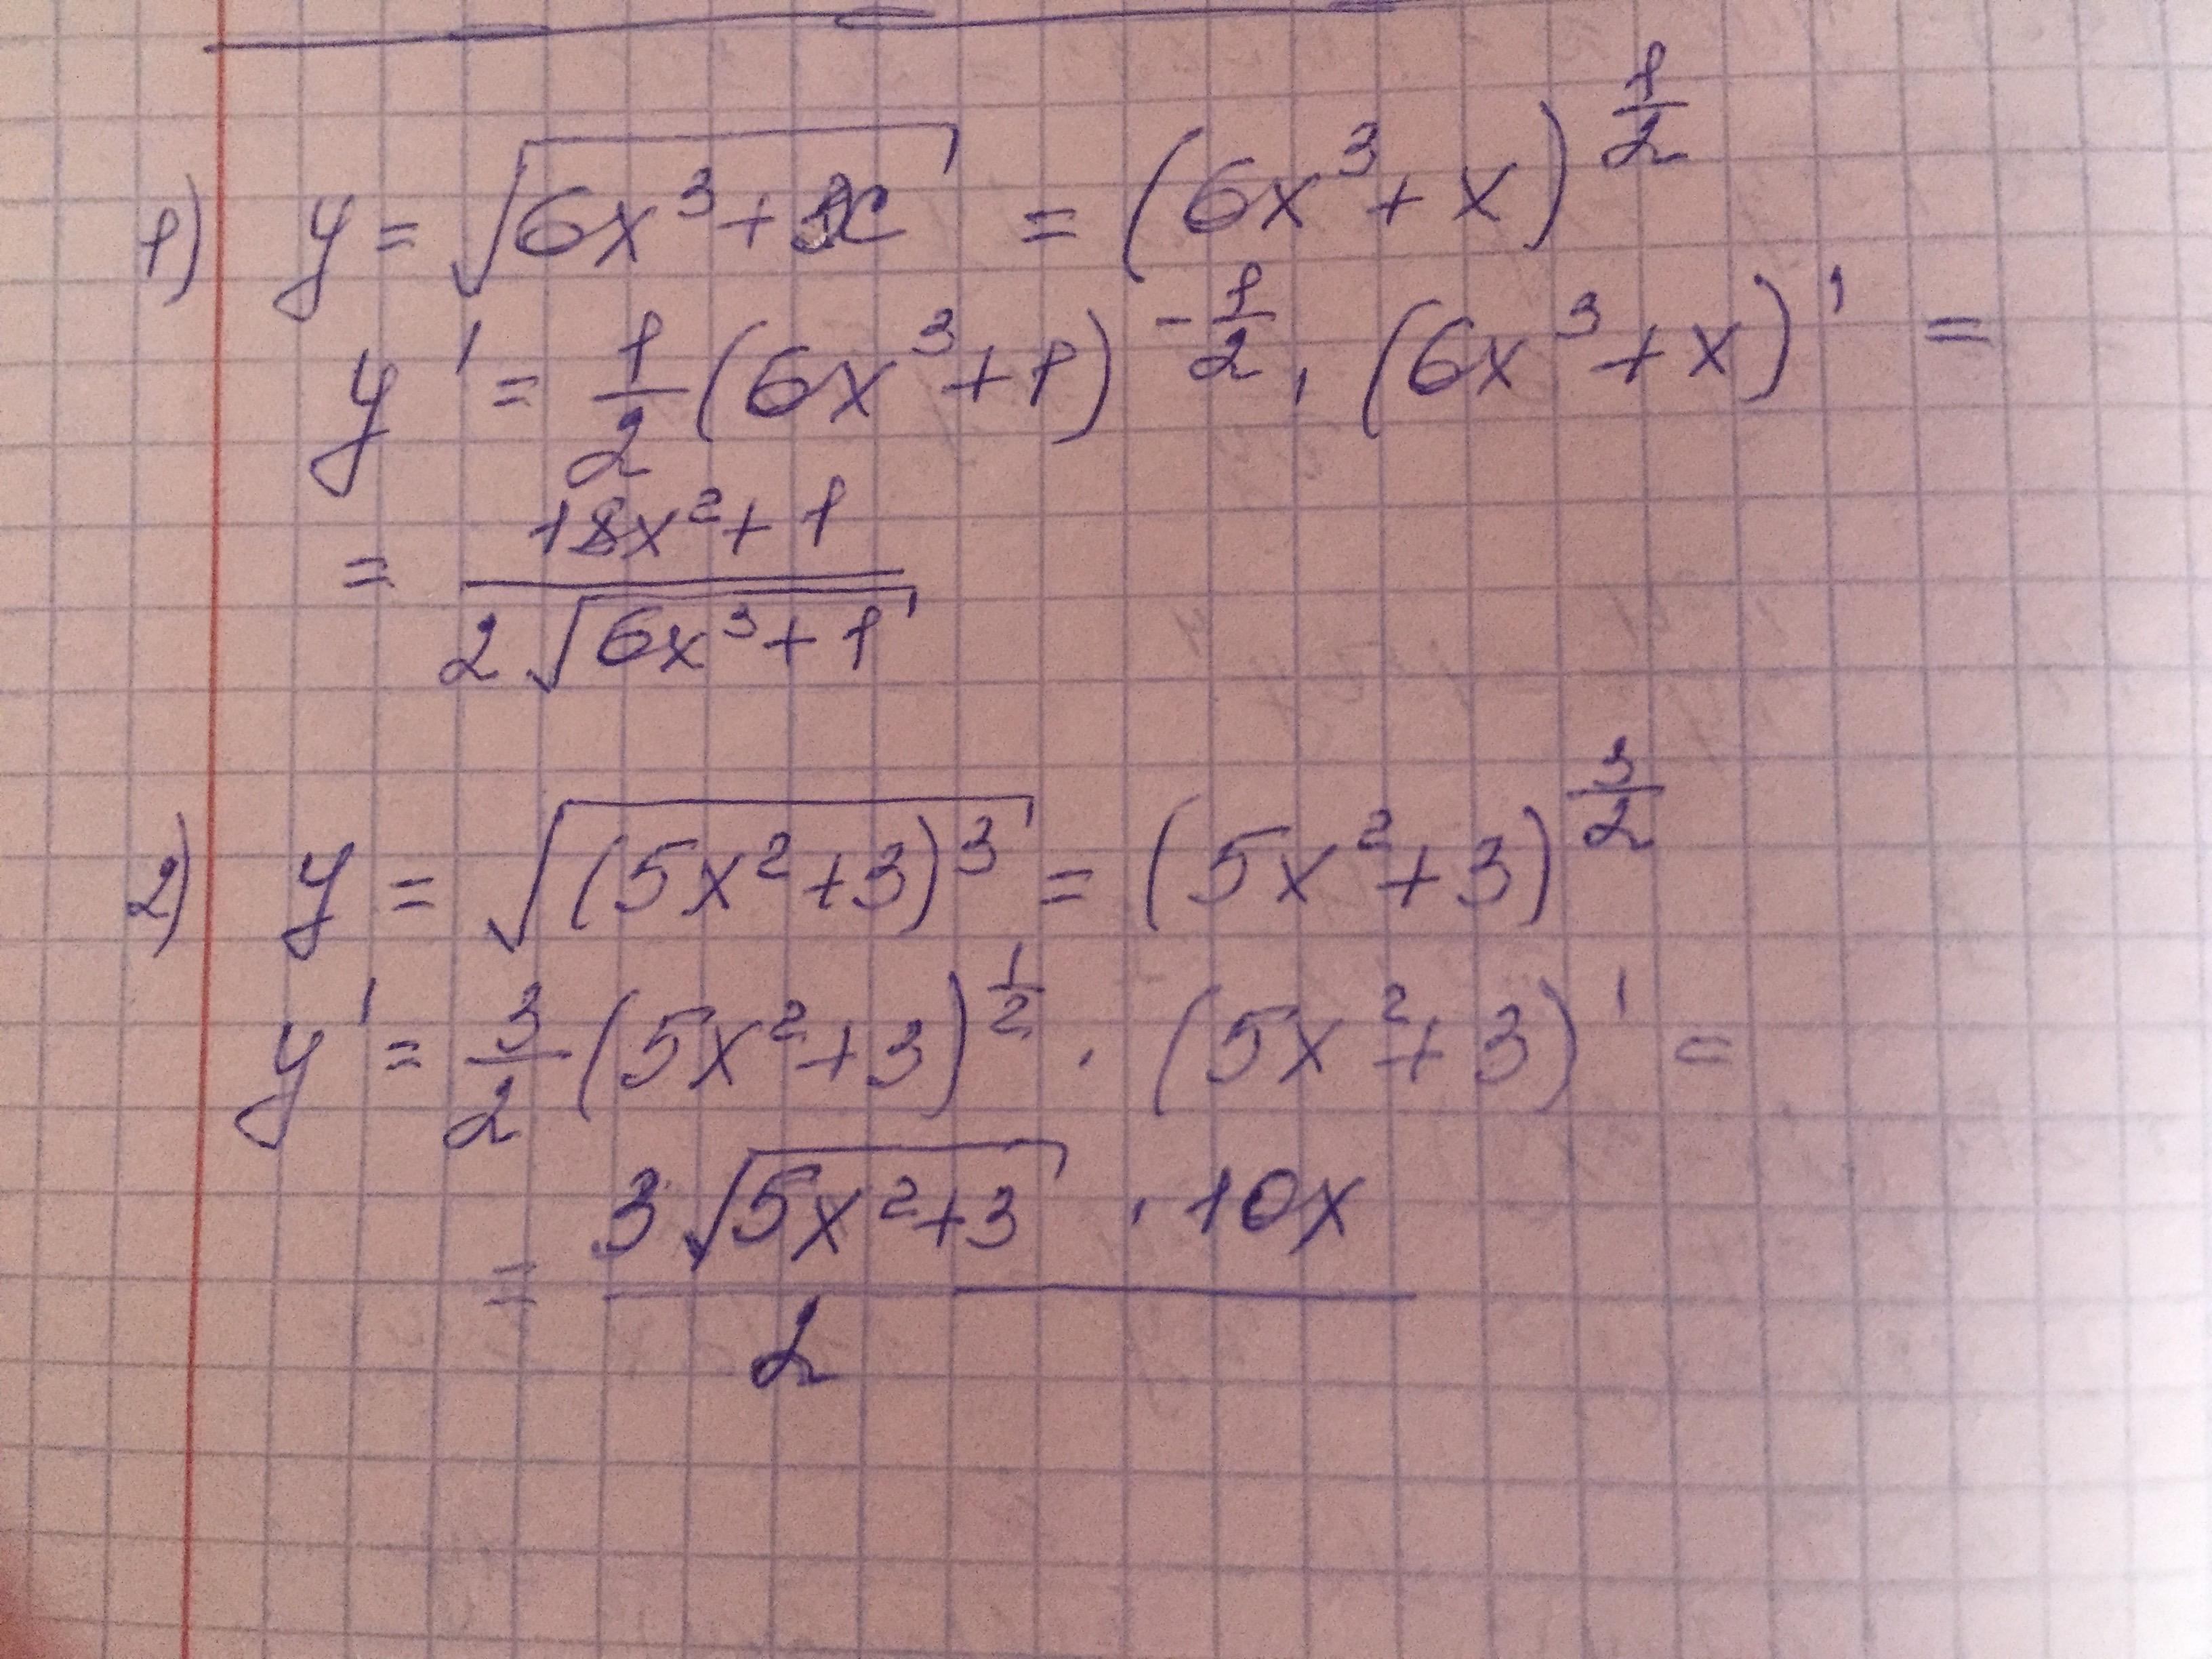 1) y = √(6x³+x) = (6x³+x)^(1/2)
y' = 1/2 (6x³+1)^(-1/2) · (6x³+x)' =
= (18x²+1)/(2√(6x³+1))
2) y = √((5x²+3)³) = (5x²+3)^(3/2)
y' = 3/2 (5x²+3)^(1/2) · (5x²+3)' =
= (3√(5x²+3) · 10x)/2